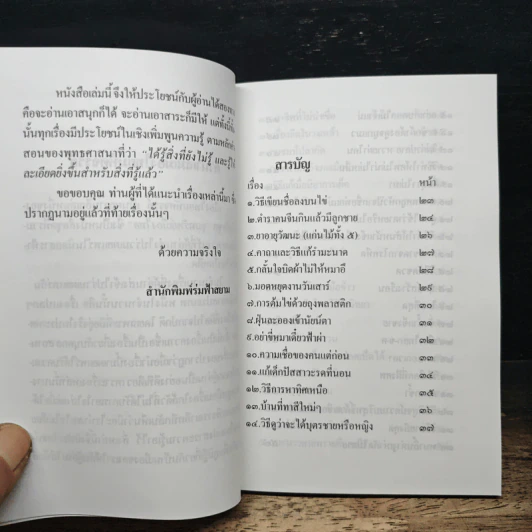 หนังสือเล่มนี้ จึงให้ประโยชน์กับผู้อ่านได้สองทาง
คือจะอ่านเอาสนุกก็ได้ จะอ่านเอาสาระก็มีให้ แต่ทั้งนี้ทั้ง
นั้นทุกเรื่องมีประโยชน์ในเชิงเพิ่มพูนความรู้ ตามหลักคำ
สอนของพุทธศาสนาที่ว่า "ได้รู้สิ่งที่ยังไม่รู้ และรู้ให้
ละเอียดยิ่งขึ้นสำหรับสิ่งที่รู้แล้ว"
ขอขอบคุณ ท่านผู้ที่ได้แนะนำเรื่องเหล่านี้มา ซึ่ง
ปรากฏนามอยู่แล้วที่ท้ายเรื่องนั้นๆ
ด้วยความจริงใจ
สำนักพิมพ์ร่มฟ้าสยาม
สารบัญ
เรื่อง หน้า
๑.วิธีเขียนชื่อลงบนไข่ ๒๓
๒.ตำราคนจีนกินแล้วมีลูกชาย ๒๔
๓.ยาอายุวัฒนะ (แก่นไม้ทั้ง ๕) ๒๖
๔.คาถาและวิธีแก้ร่ำมะนาด ๒๗
๕.กลั้นใจบิดผ้าไม่ให้หมาขี้ ๒๘
๖.มอดหยุดงานวันเสาร์ ๒๙
๗.การต้มไข่ด้วยถุงพลาสติก ๓๐
๘.ฝุ่นละอองเข้านัยน์ตา ๓๑
๙.อย่าขี่หมาเดี๋ยวฟ้าผ่า ๓๒
๑๐.ความเชื่อของคนแต่ก่อน ๓๓
๑๑.แก้เด็กปัสสาวะรดที่นอน ๓๔
๑๒.วิธีการหาทิศเหนือ ๓๕
๑๓.บ้านที่ทาสีใหม่ๆ ๓๖
๑๔.วิธีดูว่าจะได้บุตรชายหรือหญิง ๓๗